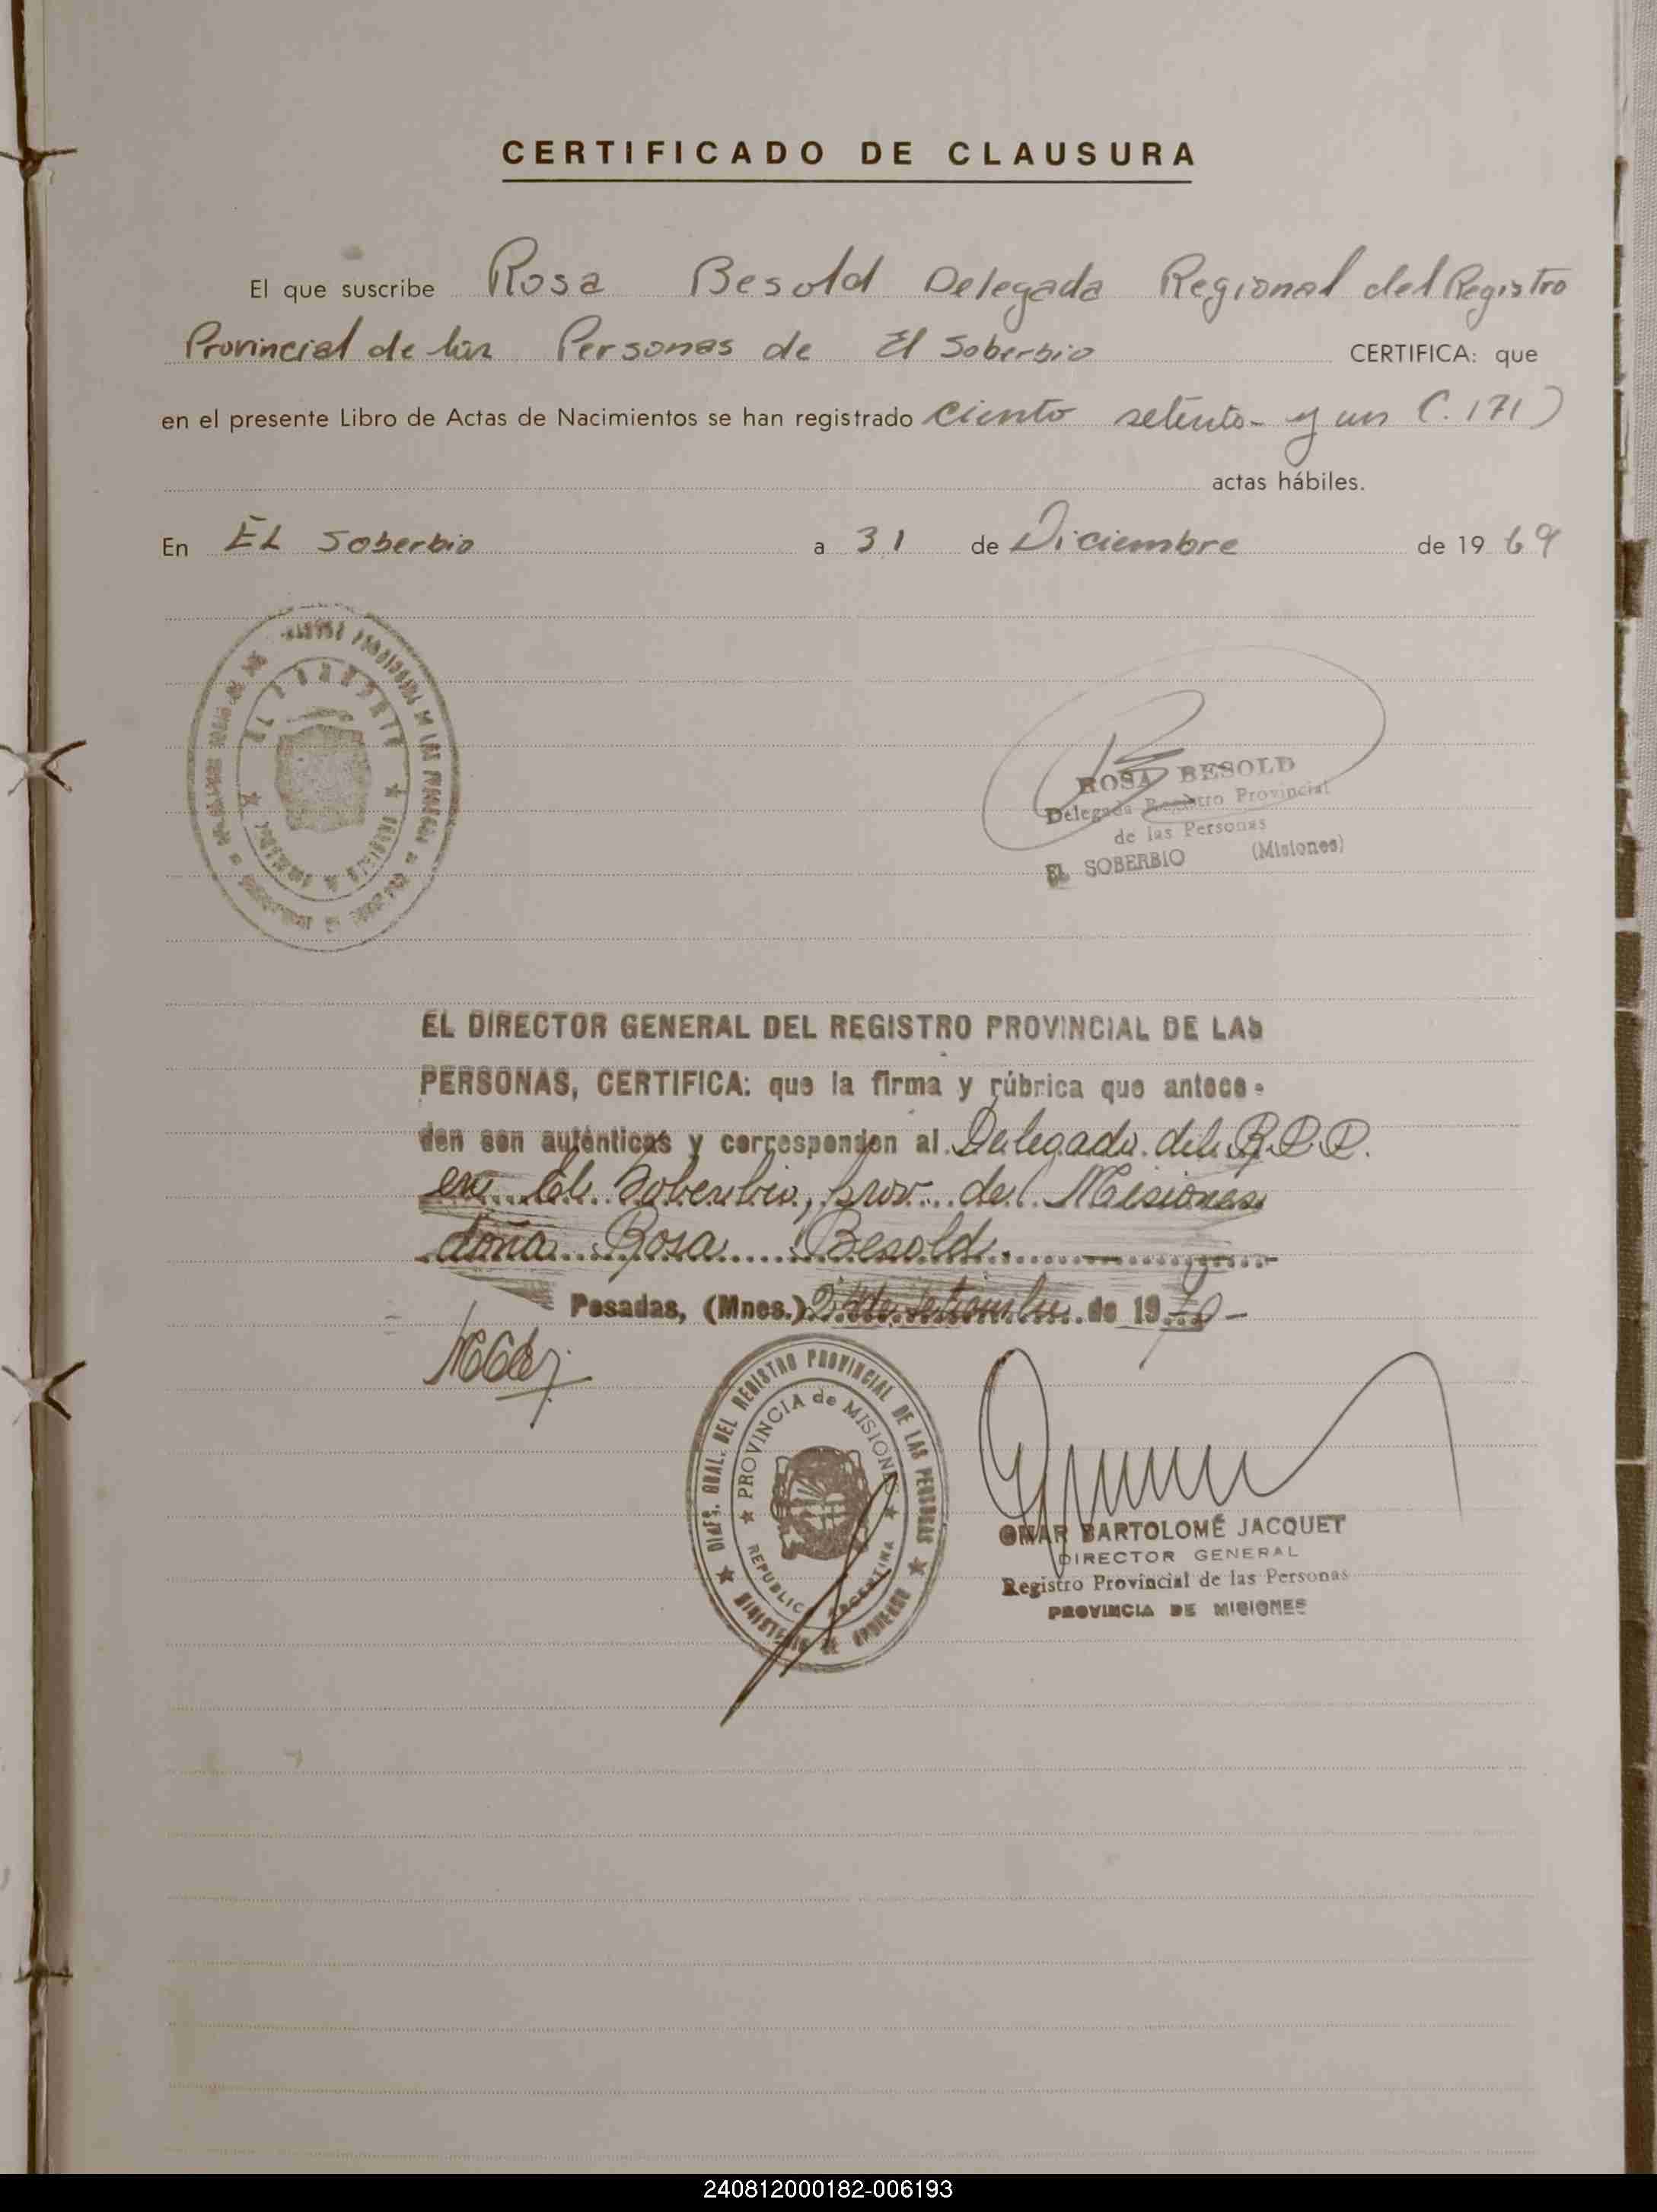 CERTIFICADO DE CLAUSURA
El que suscribe Rosa Besold Delegada Regional del Registro
Provincial de las Personas de El Soberbio CERTIFICA: que
en el presente Libro de Actas de Nacimientos se han registrado ciento setenta y un (171)
actas hábiles.
En EL Soberbio a 31 de Diciembre de 1969
ROSA BESOLD
Delegada Registro Provincial
de las Personas
EL SOBERBIO (Misiones)
EL DIRECTOR GENERAL DEL REGISTRO PROVINCIAL DE LAS
PERSONAS, CERTIFICA: que la firma y rúbrica que antece-
den son auténticas y corresponden al Delegado del R.P.P.
en El Soberbio, prov. de Misiones
doña Rosa Besold.
Posadas, (Mnes.) de Setiembre de 1970-
DIREC. GRAL. DEL REGISTRO PROVINCIAL DE LAS PERSONAS
PROVINCIA de MISIONES
REPUBLICA ARGENTINA
MINISTERIO DE GOBIERNO
OMAR BARTOLOMÉ JACQUET
DIRECTOR GENERAL
Registro Provincial de las Personas
PROVINCIA DE MISIONES
240812000182-006193